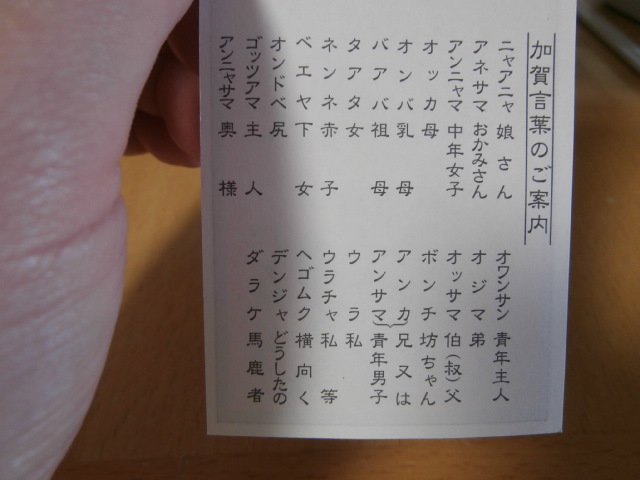 加賀言葉のご案内
ニャアニャ 娘さん
アネサマ おかみさん
アンニャマ 中年女子
オッカ 母
オンバ 乳母
バアバ 祖母
タアタ 女
ネンネ 赤子
ベエヤ 下女
オンドベ 尻
ゴッツアマ 主人
アンニャサマ 奥様
オワンサン 青年主人
オジマ 弟
オッサマ 伯(叔)父
ボンチ 坊ちゃん
アンカ 兄又は
アンサマ 青年男子
ウラ 私
ウラチャ 私等
ヘゴムク 横向く
デンジャ どうしたの
ダラケ 馬鹿者